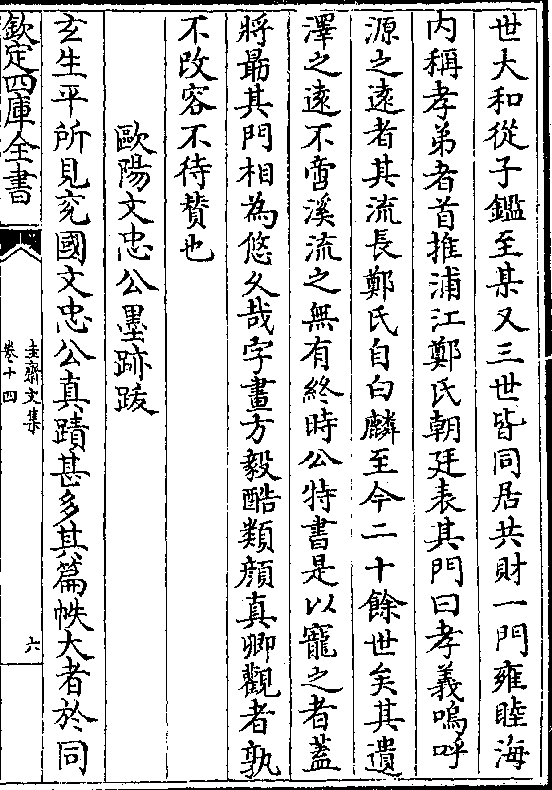 世大和從子鑑至某又三世皆同居共財一門雍睦海
内稱孝弟者首推浦江鄭氏朝廷表其門曰孝義嗚呼
源之遠者其流長鄭氏自白麟至今二十餘世矣其遺
澤之遠不啻溪流之無有終時公特書是以寵之者蓋
將最其門相為悠久哉字畫方毅酷類顔真卿觀者孰
不改容不待賛也
歐陽文忠公墨跡跋
玄生平所見兖國文忠公真蹟甚多其篇帙大者於同
欽定四庫全書
圭齋文集
卷十四
六